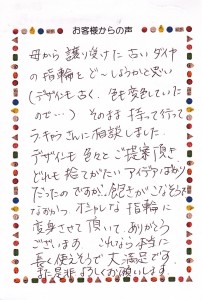 お客様からの声
母から譲り受けた古いダイヤ
の指輪をど〜しょうかと思い
(デザインも古く、色も変色していた
ので…)そのまま持って行って
ラ・キャラさんに相談しました。
デザインも色々とご提案頂き
どれも捨てがたいアイデアばかり
だったのですが、飽きがこなそうで
なおかつ、オシャレな指輪に
変身させて頂いてありがとう
ございます これなら本当に
長く使えそうで大満足です。
また是非よろしくお願いします。